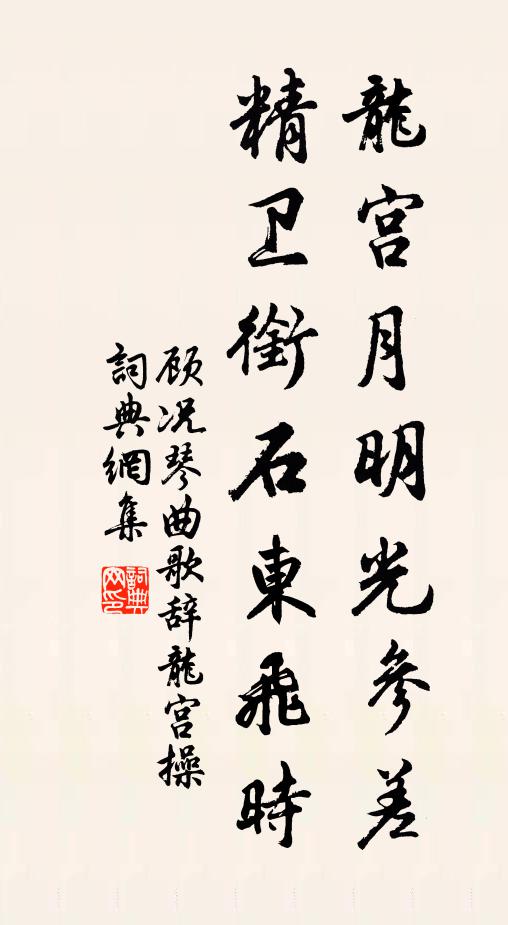 龍宫月明光參差
精卫銜石東飛時
顾况琴曲歌辞龍宫操
詞典網集
詞典网印